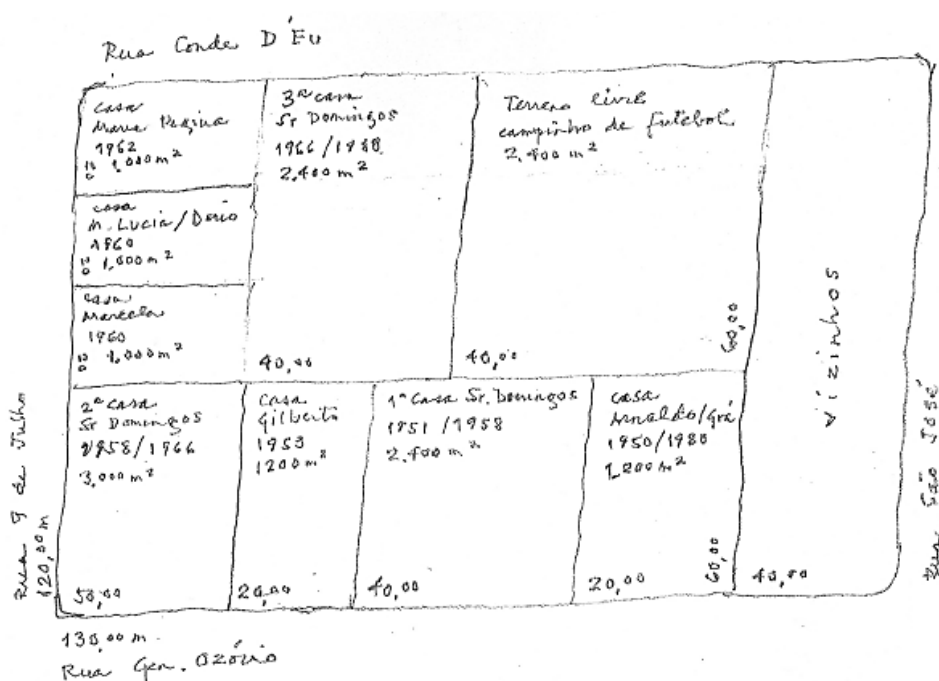 Rua Conde D'Eu
casa
Maria Regina
1962
1,000 m²
3ª casa
Sr Domingos
1966/1988
2.400 m²
Terreno livre
campinho de futebol
2.400 m²
casa
M. Lucia/Dorio
1960
1,000 m²
casa
Marcela
1960
1.000 m²
40,00
40,00
60,00
vizinhos
2ª casa
Sr Domingos
1958/1966
3,000 m²
50,00
casa
Gilberto
1953
1200 m²
20,00
1ª Casa Sr. Domingos
1951/1958
2.400 m²
40,00
casa
Arnaldo/Grá
1950/1980
1,200 m²
20,00
60,00
40,00
Rua 9 de Julho
120,00 m
Rua São José
130,00 m
Rua Gen. Ozório